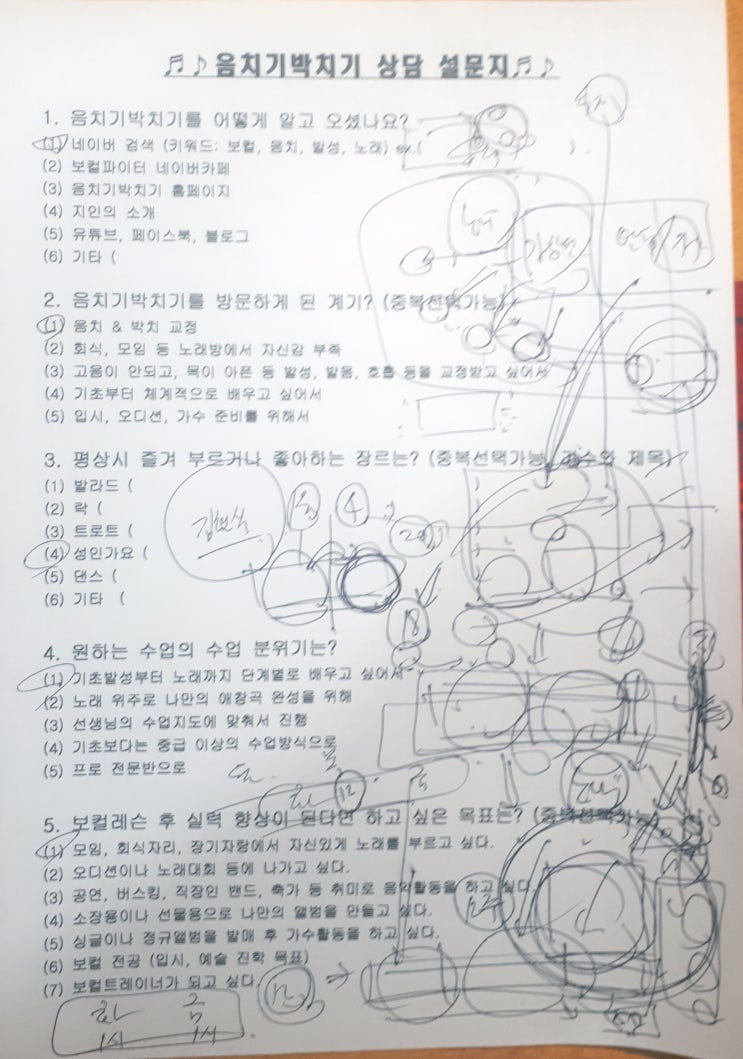 ♬♪음치기박치기 상담 설문지♬♪
1. 음치기박치기를 어떻게 알고 오셨나요?
(1) 네이버 검색 (키워드: 보컬, 음치, 발성, 노래) ex.( ).
(2) 보컬파이터 네이버카페
(3) 음치기박치기 홈페이지
(4) 지인의 소개
(5) 유튜브, 페이스북, 블로그
(6) 기타 (
2. 음치기박치기를 방문하게 된 계기? (중복선택가능)
(1) 음치 & 박치 교정
(2) 회식, 모임 등 노래방에서 자신감 부족
(3) 고음이 안되고, 목이 아픈 등 발성, 발음, 호흡 등을 교정받고 싶어서
(4) 기초부터 체계적으로 배우고 싶어서
(5) 입시, 오디션, 가수 준비를 위해서
3. 평상시 즐겨 부르거나 좋아하는 장르는? (중복선택가능, 가수와 제목)
(1) 발라드 (
(2) 락 (
(3) 트로트 (
(4) 성인가요 (
(5) 댄스 (
(6) 기타 (
4
18
4. 원하는 수업의 수업 분위기는?
(1) 기초발성부터 노래까지 단계별로 배우고 싶어서
(2) 노래 위주로 나만의 애창곡 완성을 위해
(3) 선생님의 수업지도에 맞춰서 진행
(4) 기초보다는 중급 이상의 수업방식으로
(5) 프로 전문반으로
12
5. 보컬레슨 후 실력 향상이 된다면 하고 싶은 목표는? (중복선택가능)
(1) 모임, 회식자리, 장기자랑에서 자신있게 노래를 부르고 싶다.
(2) 오디션이나 노래대회 등에 나가고 싶다.
(3) 공연, 버스킹, 직장인 밴드, 축가 등 취미로 음악활동을 하고 싶다.
(4) 소장용이나 선물용으로 나만의 앨범을 만들고 싶다.
(5) 싱글이나 정규앨범을 발매 후 가수활동을 하고 싶다.
(6) 보컬 전공 (입시, 예술 진학 목표)
(7) 보컬트레이너가 되고 싶다.
화 금
1시 1시